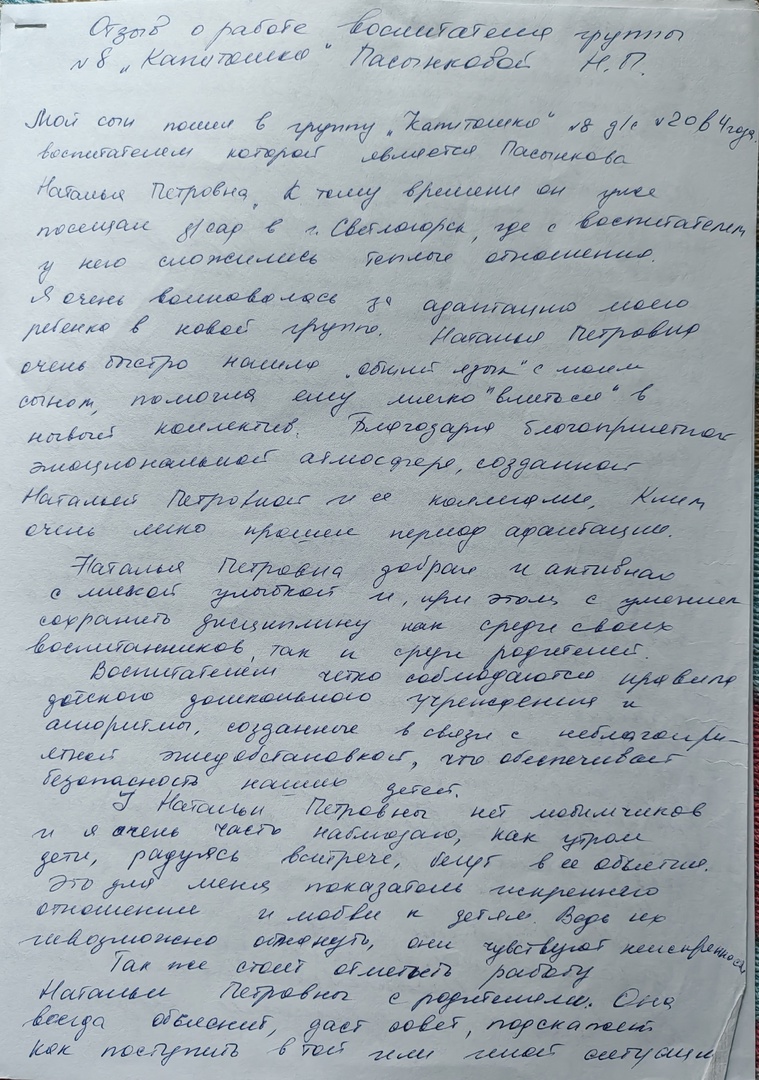 Отзыв о работе воспитателя группы
№8 „Капитошка" Пасынковой Н.П.
Мой сын пошел в группу „Капитошка" №8 д/с №20 в 4 года,
воспитателем которой является Пасынкова
Наталья Петровна. К тому времени он уже
посещал д/сад в г. Светлогорск, где с воспитателем
у него сложились теплые отношения.
Я очень волновалась за адаптацию моего
ребенка в новой группе. Наталья Петровна
очень быстро нашла „общий язык" с моим
сыном, помогла ему мягко "влиться" в
новый коллектив. Благодаря благоприятной
эмоциональной атмосфере, созданной
Натальей Петровной и ее коллегами, Клим
очень легко прошел период адаптации.
Наталья Петровна добрая и активная
с мягкой улыбкой и, при этом, с умением
сохранить дисциплину как среди своих
воспитанников, так и среди родителей.
Воспитателем четко соблюдаются правила
детского дошкольного учреждения и
алгоритмы, созданные в связи с неблагопри-
ятной эпидобстановкой, что обеспечивает
безопасность наших детей.
У Натальи Петровны нет любимчиков
и я очень часто наблюдаю, как утром
дети, радуясь встрече, бегут в ее объятия.
Это для меня показатель искреннего
отношения и любви к детям. Ведь их
невозможно обмануть, они чувствуют неискренность.
Так же стоит отметить работу
Натальи Петровны с родителями. Она
всегда объяснит, даст совет, подскажет
как поступить в той или иной ситуации